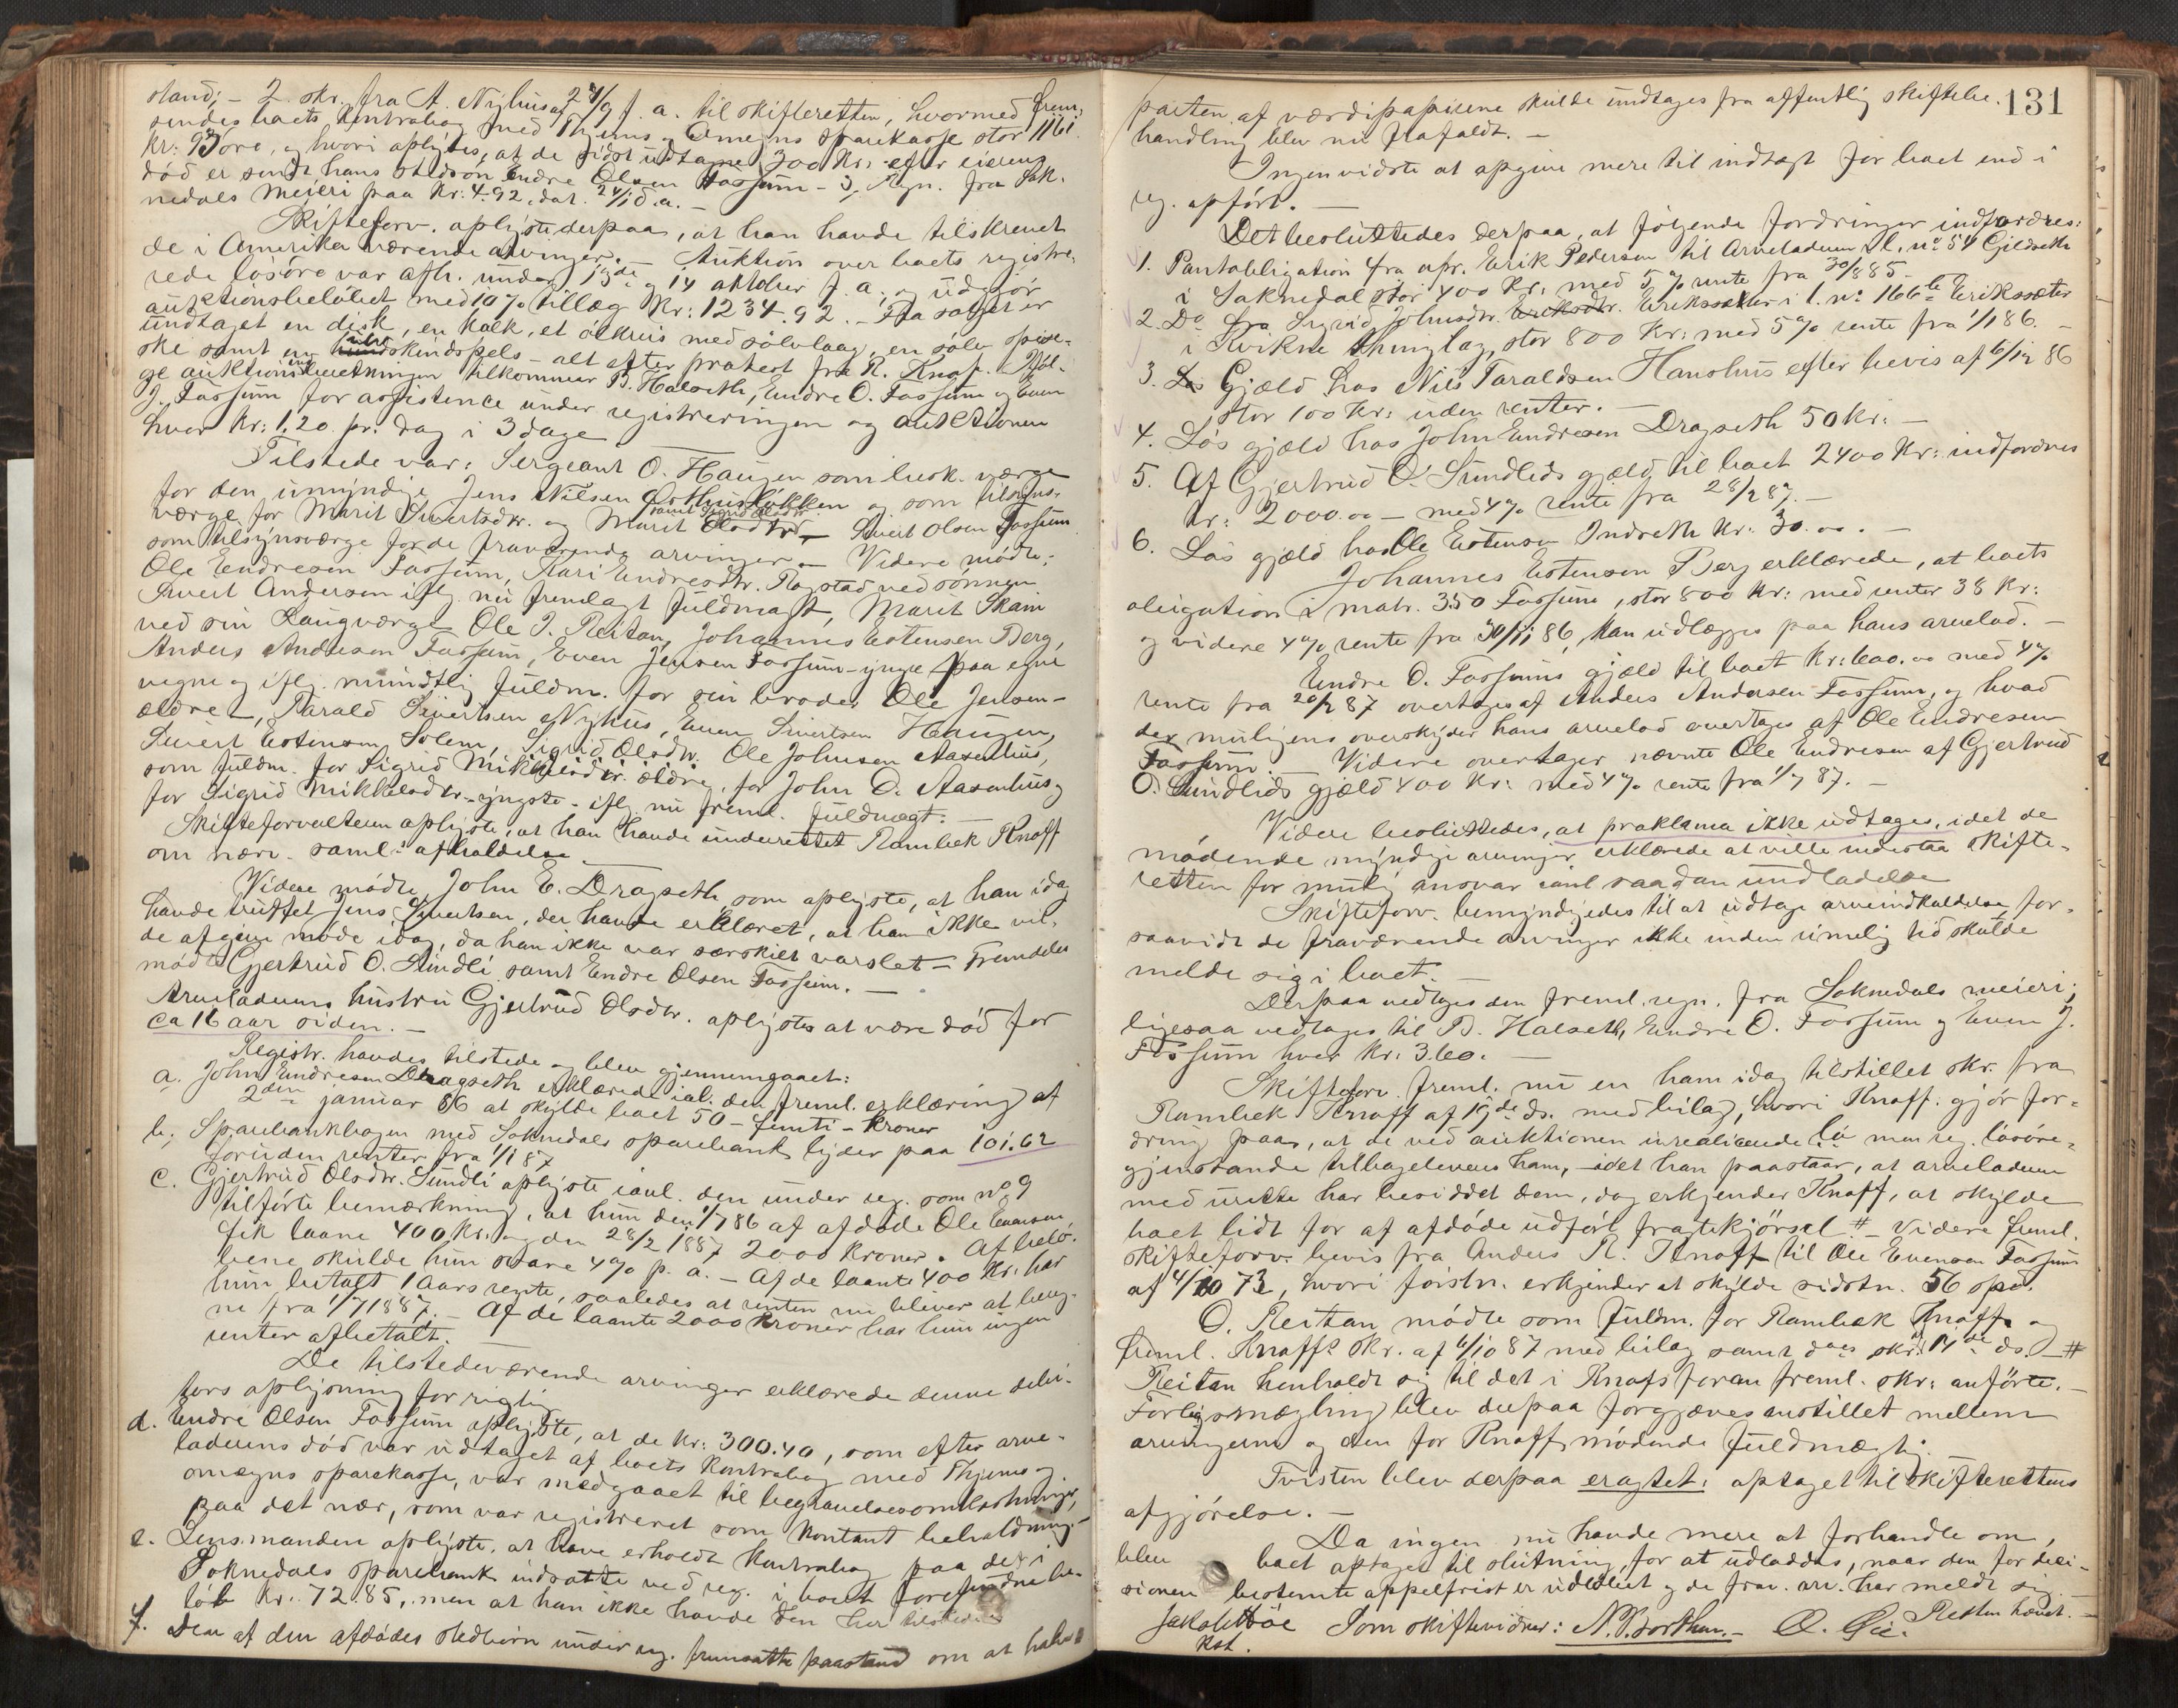 stand; – 2. skr. fra A. Nyhus af 24/9 f. a. til skifteretten, hvormed frem-
sendes boets kontrabog med Thjems og Omegns sparekasse stor 1161
Kr: 93 øre, og hvori oplyses, at de sidst udtagne 300 Kr: efter eierens
død er sendt hans stedsøn Endre Olsen Fossum – 3, Regn. fra Sok-
nedals meieri paa Kr. 4.92, dat. 24/10 d. a. –
Skifteforv. oplyste derpaa, at han havde tilskrevet
de i Amerika værende arvinger. – Auktion over boets registre-
rede løsøre var afh. under 13de og 14 oktober f. a., og udgjør
auktionsbeløbet med 10 % tillæg Kr: 1234.92. – Fra salget er
undtaget en disk, en kalk, et ølkrus med sølvlaag, en sølv spise-
ske samt en skindspels – alt efter protest fra R. Knof.
ge auktionsberetningen tilkommer B. Halseth, Endre O. Fossum og Even
J. Fossum for assistence under registreringen og auktionen
hver Kr: 1,20 pr. dag i 3 dage
Tilstede var: Sergeant O. Haugen som besk. værge
for den umyndige Jens Nilsen og som tilsyns-
værge for Marit Sivertsdtr. og Marit Olsdtr. – Sivert Olsen Fossum
som tilsynsværge for de fraværende arvinger – Videre mødte:
Ole Endresen Fossum, Kari Endresdtr. Rogstad ved sønnen
Sivert Andersen iflg. nu fremlagt fuldmagt, Marit Skain
ved sin Laugværge Ole J. Reitan, Johannes Estensen Berg,
Anders Andersen Fossum, Even Jensen Fossum – yngre paa egne
vegne og iflg. mundtlig fuldm. for sin broder Ole Jensen –
ældre –, Tarald Sivertsen Nyhus, Even Sivertsen Haugen,
Sivert Estensen Solem, Sigrid Olsdtr. Ole Johnsen Aasenhus,
som fuldm. for Sigrid Mikkelsdtr. ældre, for John O. Aasenhus og
for Sigrid Mikkelsdtr. – yngste – iflg. nu freml. fuldmagt. –
Skifteforvalteren oplyste, at han havde underrettet Rambek Knoff
om nærv. saml.s afholdelse
Videre mødte John E. Dragseth, som oplyste, at han idag
havde truffet Jens Sivertsen, der havde erklæret, at han ikke vil-
de afgive møde idag, da han ikke var særskilt varslet – Fremdeles
mødte Gjertrud O. Sundli samt Endre Olsen Fossum. –
Arveladerens hustru Gjertrud Olsdtr. oplystes at være død for
ca 16 aar siden. –
Registr. havdes tilstede og blev gjennemgaaet:
a. John Endresen Dragseth erklærede ial. den freml. erklæring af
2den januar 86 at skylde boet 50 – femti – kroner
b. Sparebankbogen med Soknedals sparebank lyder paa 101.62
foruden renter fra 1/1 87
c. Gjertrud Olsdtr. Sundli oplyste ianl. den under reg. som no 9
tilførte bemærkning, at hun den 1/7 86 af afdøde Ole Evensen
fik laane 400 Kr: og den 28/2 1887 2000 kroner. Af belø-
bene skulde hun svare 4 % p. a. – Af de laante 400 Kr: har
hun betalt 1 aars rente, saaledes at renten nu bliver at bereg-
ne fra 1/7 1887. – Af de laante 2000 kroner har hun ingen
renter afbetalt.
De tilstedeværende arvinger erklærede denne debi-
tors oplysning for rigtig
d. Endre Olsen Fossum oplyste, at de Kr: 300.40, som efter arve-
laderens død var udtaget af boets kontrabog med Thjems og
omegns sparekasse, var medgaaet til begravelsesomkostninger,
paa det nær, som var registreret som kontant beholdning. –
e. Lensmanden oplyste, at have erholdt kontrabog paa det i
Soknedals sparebank indsatte ved reg. i boet forefundne be-
løb Kr. 72.85, men at han ikke havde den her tilstede
f. Den af den afdødes stedbørn under reg. fremsatte paastand om at halv-
131
parten af værdipapirene skulde undtages fra offentlig skiftebe-
handling blev nu frafaldt. –
Ingen vidste at opgive mere til indtægt for boet end i
reg. opført. –
Det besluttedes derpaa, at følgende fordringer indfordres:
1. Pantobligation fra afr. Erik Pedersen til Arveladeren i l. no 54 Gildseth
i Soknedal stor 400 Kr: med 5 % rente fra 30/8 85 –
2. Do fra Sigrid Johnsdtr. Eriksdtr. Erikssæter i l. no 166b Erikssæter
i Kvikne thinglag, stor 800 Kr: med 5 % rente fra 1/1 86. –
3. Gjæld hos Nils Taraldsen Hanshus efter bevis af 6/12 86
stor 100 Kr: uden renter. –
4. Løs gjæld hos John Endresen Dragseth 50 Kr: –
5. Af Gjertrud O. Sundlis gjæld til boet 2400 Kr: indfordres
Kr: 2000.00 – med 4 % rente fra 28/2 87. –
6. Løs gjæld hos Ole Estensen Indseth Kr: 30.00. –
Johannes Estensen Berg erklærede, at boets
obligation i matr. 350 Fossum, stor 800 Kr: med renter 38 Kr:
og videre 4 % rente fra 30/11 86, kan udlægges paa hans arvelod. –
Endre O. Fossums gjæld til boet Kr: 600.00 med 4 %
rente fra 20/2 87 overtages af Anders Andersen Fossum, og hvad
der muligens overskyder hans arvelod overtages af Ole Endresen
Fossum. – Videre overtager nævnte Ole Endresen af Gjertrud
O. Sundlids gjæld 400 Kr: med 4 % rente fra 1/7 87. –
Videre besluttedes, at proklama ikke udtages, idet de
mødende myndige arvinger erklærede at ville indestaa skifte-
retten for mulig ansvar ianl saadan undladelse
Skifteforv. bemyndigedes til at udtage arveindkaldelse for-
saavidt de fraværende arvinger ikke inden rimelig tid skulde
melde sig i boet. –
Derpaa vedtoges den freml. regn. fra Soknedals meieri;
ligesaa vedtages til B. Halseth, Endre O. Fossum og Even J.
Fossum hver Kr: 3.60. –
Skifteforv. freml. nu en ham idag tilstillet skr. fra
Rambek Knoff af 19de ds. med bilag, hvori Knoff gjør for-
dring paa, at de ved auktionen urealiserede men reg. løsøre-
gjenstande tilbageleveres ham, – idet han paastaar, at arveladeren
med urette har besiddet dem, dog erkjender Knoff, at skylde
boet lidt for af afdøde udført fragtekjørsel # – Videre freml.
skifteforv. bevis fra Anders R. Knoff til Ole Evensen Fossum
af 4/10 73, hvori førstn. erkjender at skylde sidstn. 56 spd.
O. Reitan mødte som fuldm. for Rambek Knoff og
freml. Knoffs skr. af 6/10 87 med bilag samt skr. 14de ds. – #
Reitan henholdt sig til det i Knofs foran freml. skr. anførte. –
Forligsmægling blev derpaa forgjæves anstillet mellem
arvingerne og den for Knoff mødende fuldmægtig. –
Tvisten blev derpaa eragtet: optaget til skifterettens
afgjørelse. –
Da ingen nu havde mere at forhandle om,
blev boet optaget til slutning, for at udloddes, naar den for deci-
sionen bestemte appelfrist er udløbet og de frav. arv. har meldt sig.
Retten hævet. –
Jakob Bøe Som skiftevidner: N. P. Borthen. – O. Gie.
Kst.